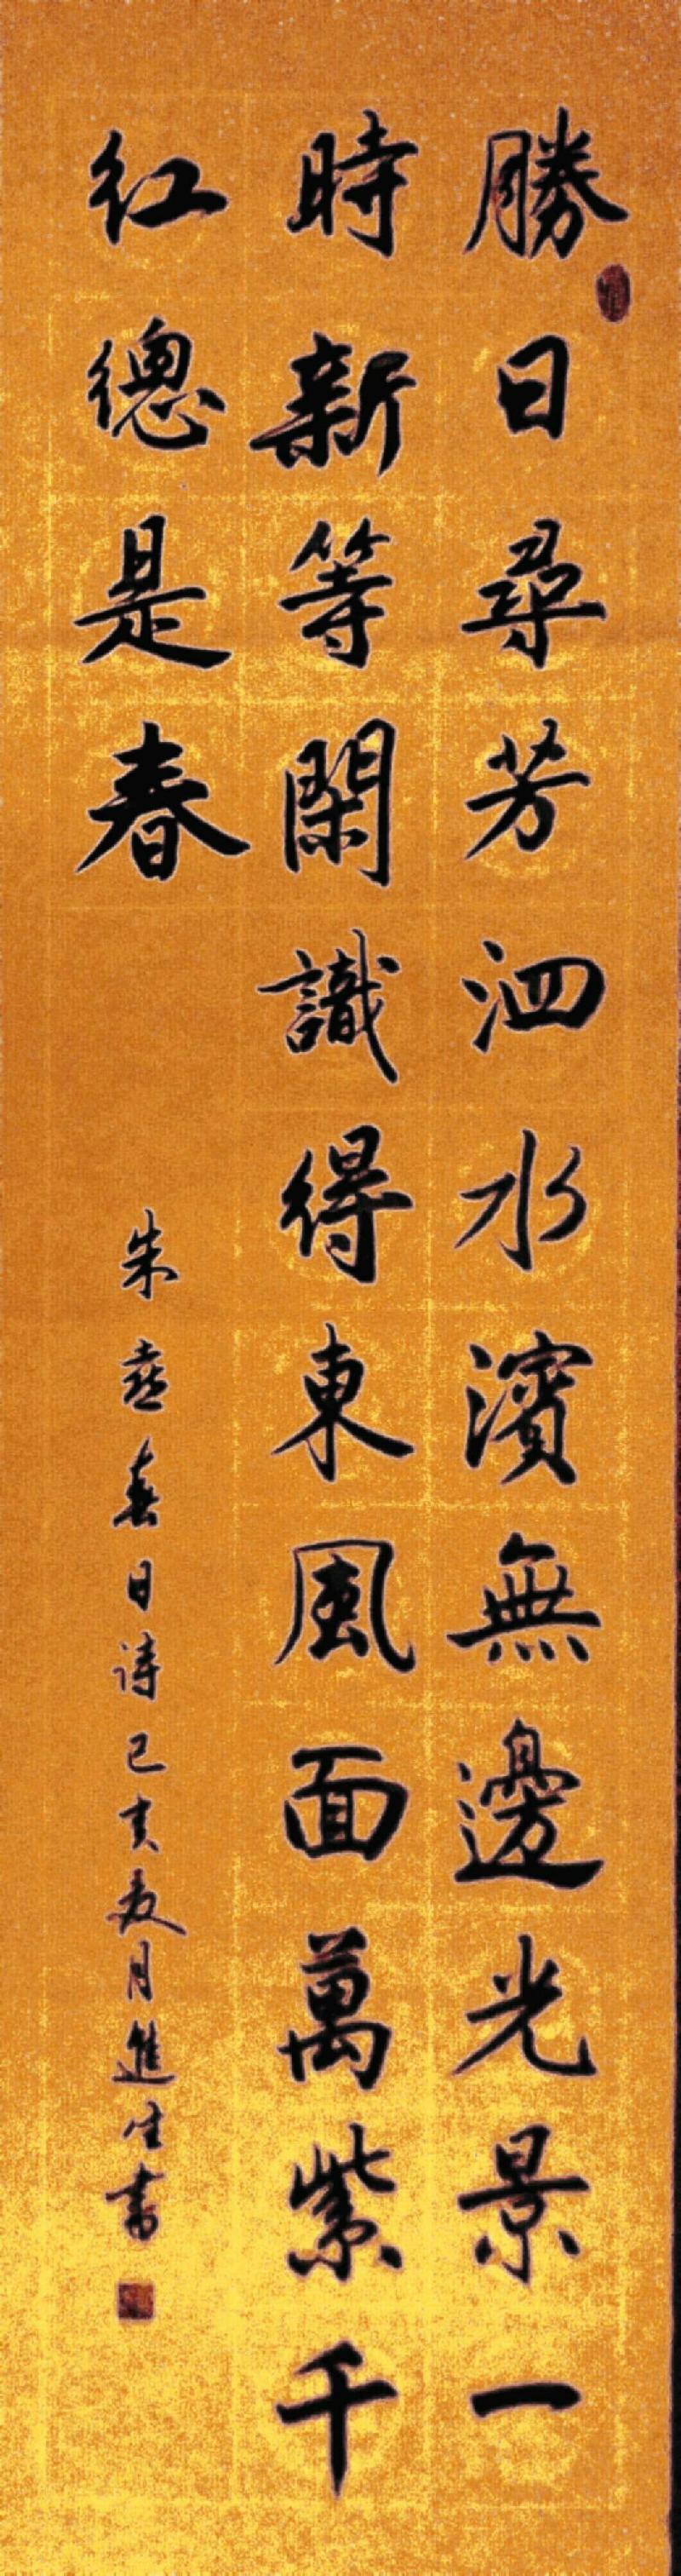 勝日尋芳泗水濱無邊光景一
時新等閑識得東風面萬紫千
紅總是春
朱熹春日诗己亥夏月進生書